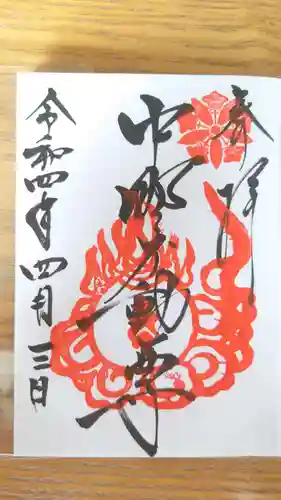 奉拝
中野不動尊
令和四年四月三日